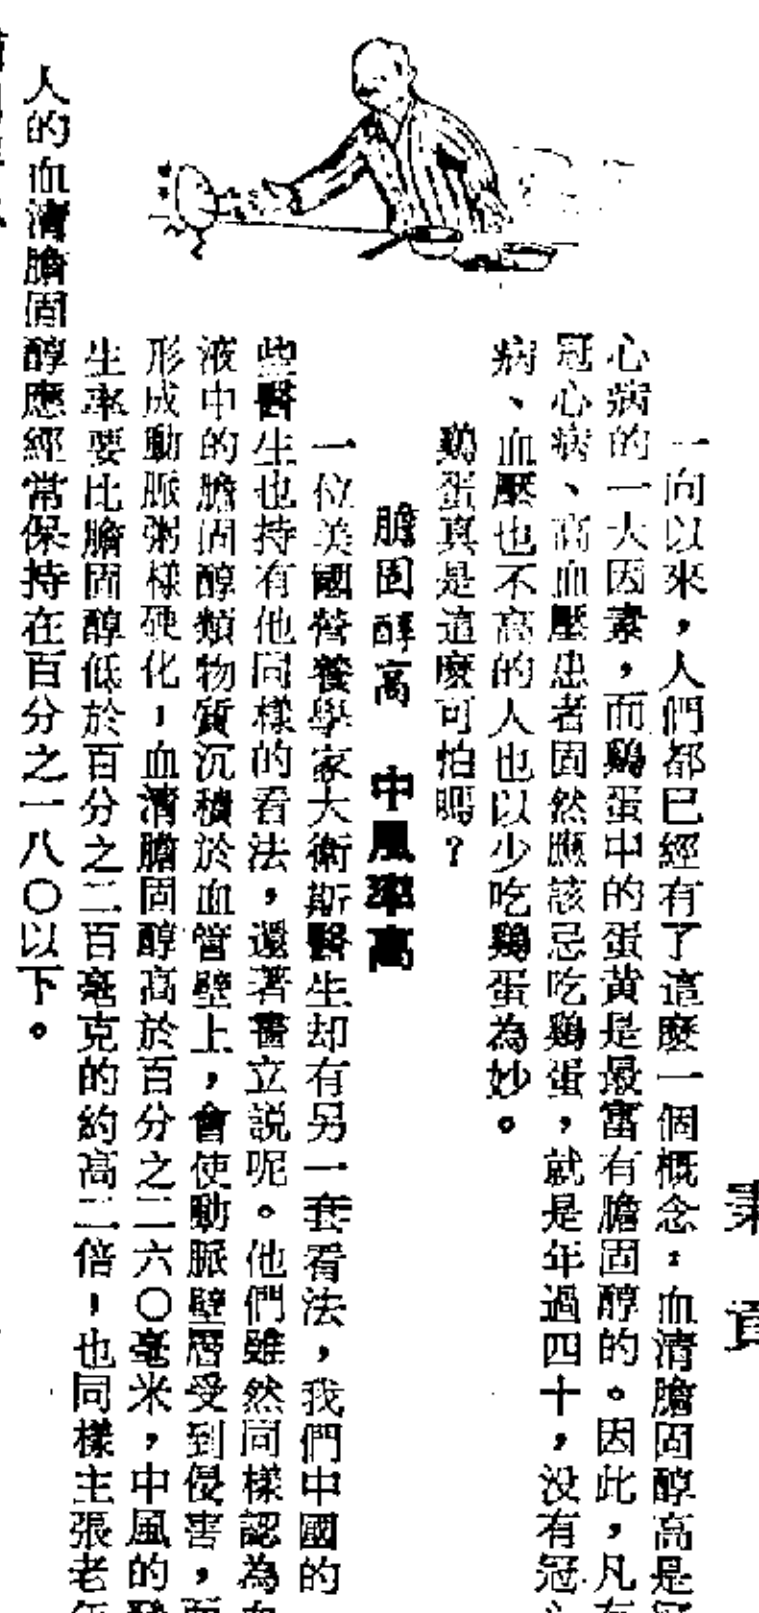 一向以來，人們都已經有了這麼一個概念：血清膽固醇高是
心病的一大因素，而鷄蛋中的蛋黃是最富有膽固醇的。因此，凡
冠心病、高血壓患者固然應該忌吃鷄蛋，就是年過四十，沒有冠
病、血壓也不高的人也以少吃鷄蛋為妙。
鷄蛋真是這麼可怕嗎？
膽固醇高　中風率高
一位美國營養學家大衛斯醫生却有另一套看法，我們中國的
些醫生也持有他同樣的看法，還著書立説呢。他們雖然同樣認為
液中的膽固醇類物質沉積於血管壁上，會使動脈壁層受到侵害，
形成動脈粥樣硬化！血清膽固醇高於百分之二六〇毫米，中風的
生率要比膽固醇低於百分之二百毫克的約高二倍！也同樣主張老
人的血清膽固醇應經常保持在百分之一八〇以下。